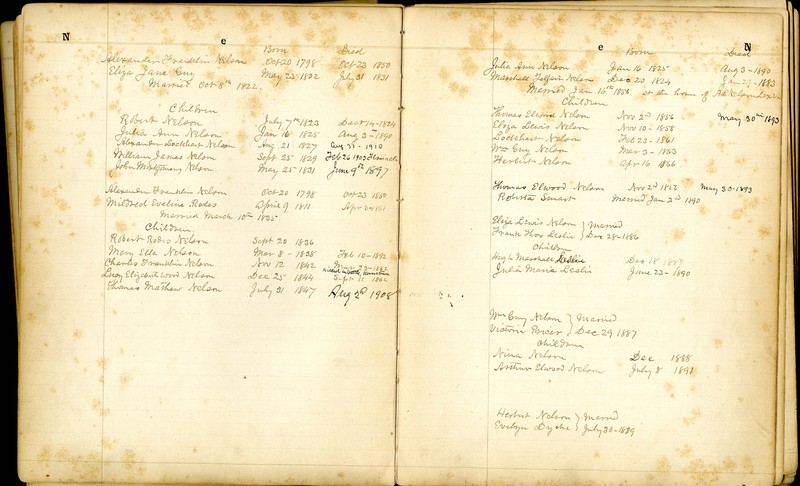 N e
Born Died
Alexander Franklin Nelson Oct 20 1798 Oct 23 1850
Eliza Jane Guy May 23 1802 July 31 1831
Married Oct 8th 1822
Children
Robert Nelson July 7th 1823 Dec 14-1824
Julia Ann Nelson Jan 16 1825 Aug 3-1890
Alexander Lockhart Nelson Aug 21 1827 Aug 31-1910
William James Nelson Sept 25 1829 Feb 26 1903
John Montgomery Nelson May 25 1831 June 9th 1897
Alexander Franklin Nelson Oct 20 1798 Oct 23 1850
Mildred Evelina Rodes April 9 1811
Married March 10th 1835
Children
Robert Rodes Nelson Sept 20 1836
Mary Ella Nelson Mar 8-1838 Feb 10-1892
Charles Franklin Nelson Nov 12 1842
Lucy Elizabeth Wood Nelson Dec 25 1844 Sept 11-1862
Thomas Mathew Nelson July 31 1847 Aug 2d 1908
e N
Born Died
Julia Ann Nelson Jan 16 1825 Aug 3-1890
Marshall Nelson Dec 20 1824
Married Jan 16th 1856 at the home of
Children
Thomas Elwood Nelson Nov 2d 1856 May 30th 1893
Eliza Lewis Nelson Nov 10-1858
Lockhart Nelson Feb 23-1861
Wm Guy Nelson Mar 3-1863
Herbert Nelson Apr 16 1866
Thomas Elwood Nelson Nov 2d May 30-1893
Roberta Smart Married Jan 2d 1890
Eliza Lewis Nelson } Married
Frank Leslie } Dec 28-1886
Children
Hugh Marshall Leslie Dec 18 1887
Julia Maria Leslie June 23-1890
Wm Guy Nelson } Married
Victoria } Dec 29 1887
Children
Nina Nelson Dec 1888
Arthur Elwood Nelson July 8 1891
Herbert Nelson } Married
Evelyn Dyche } July 30-1889